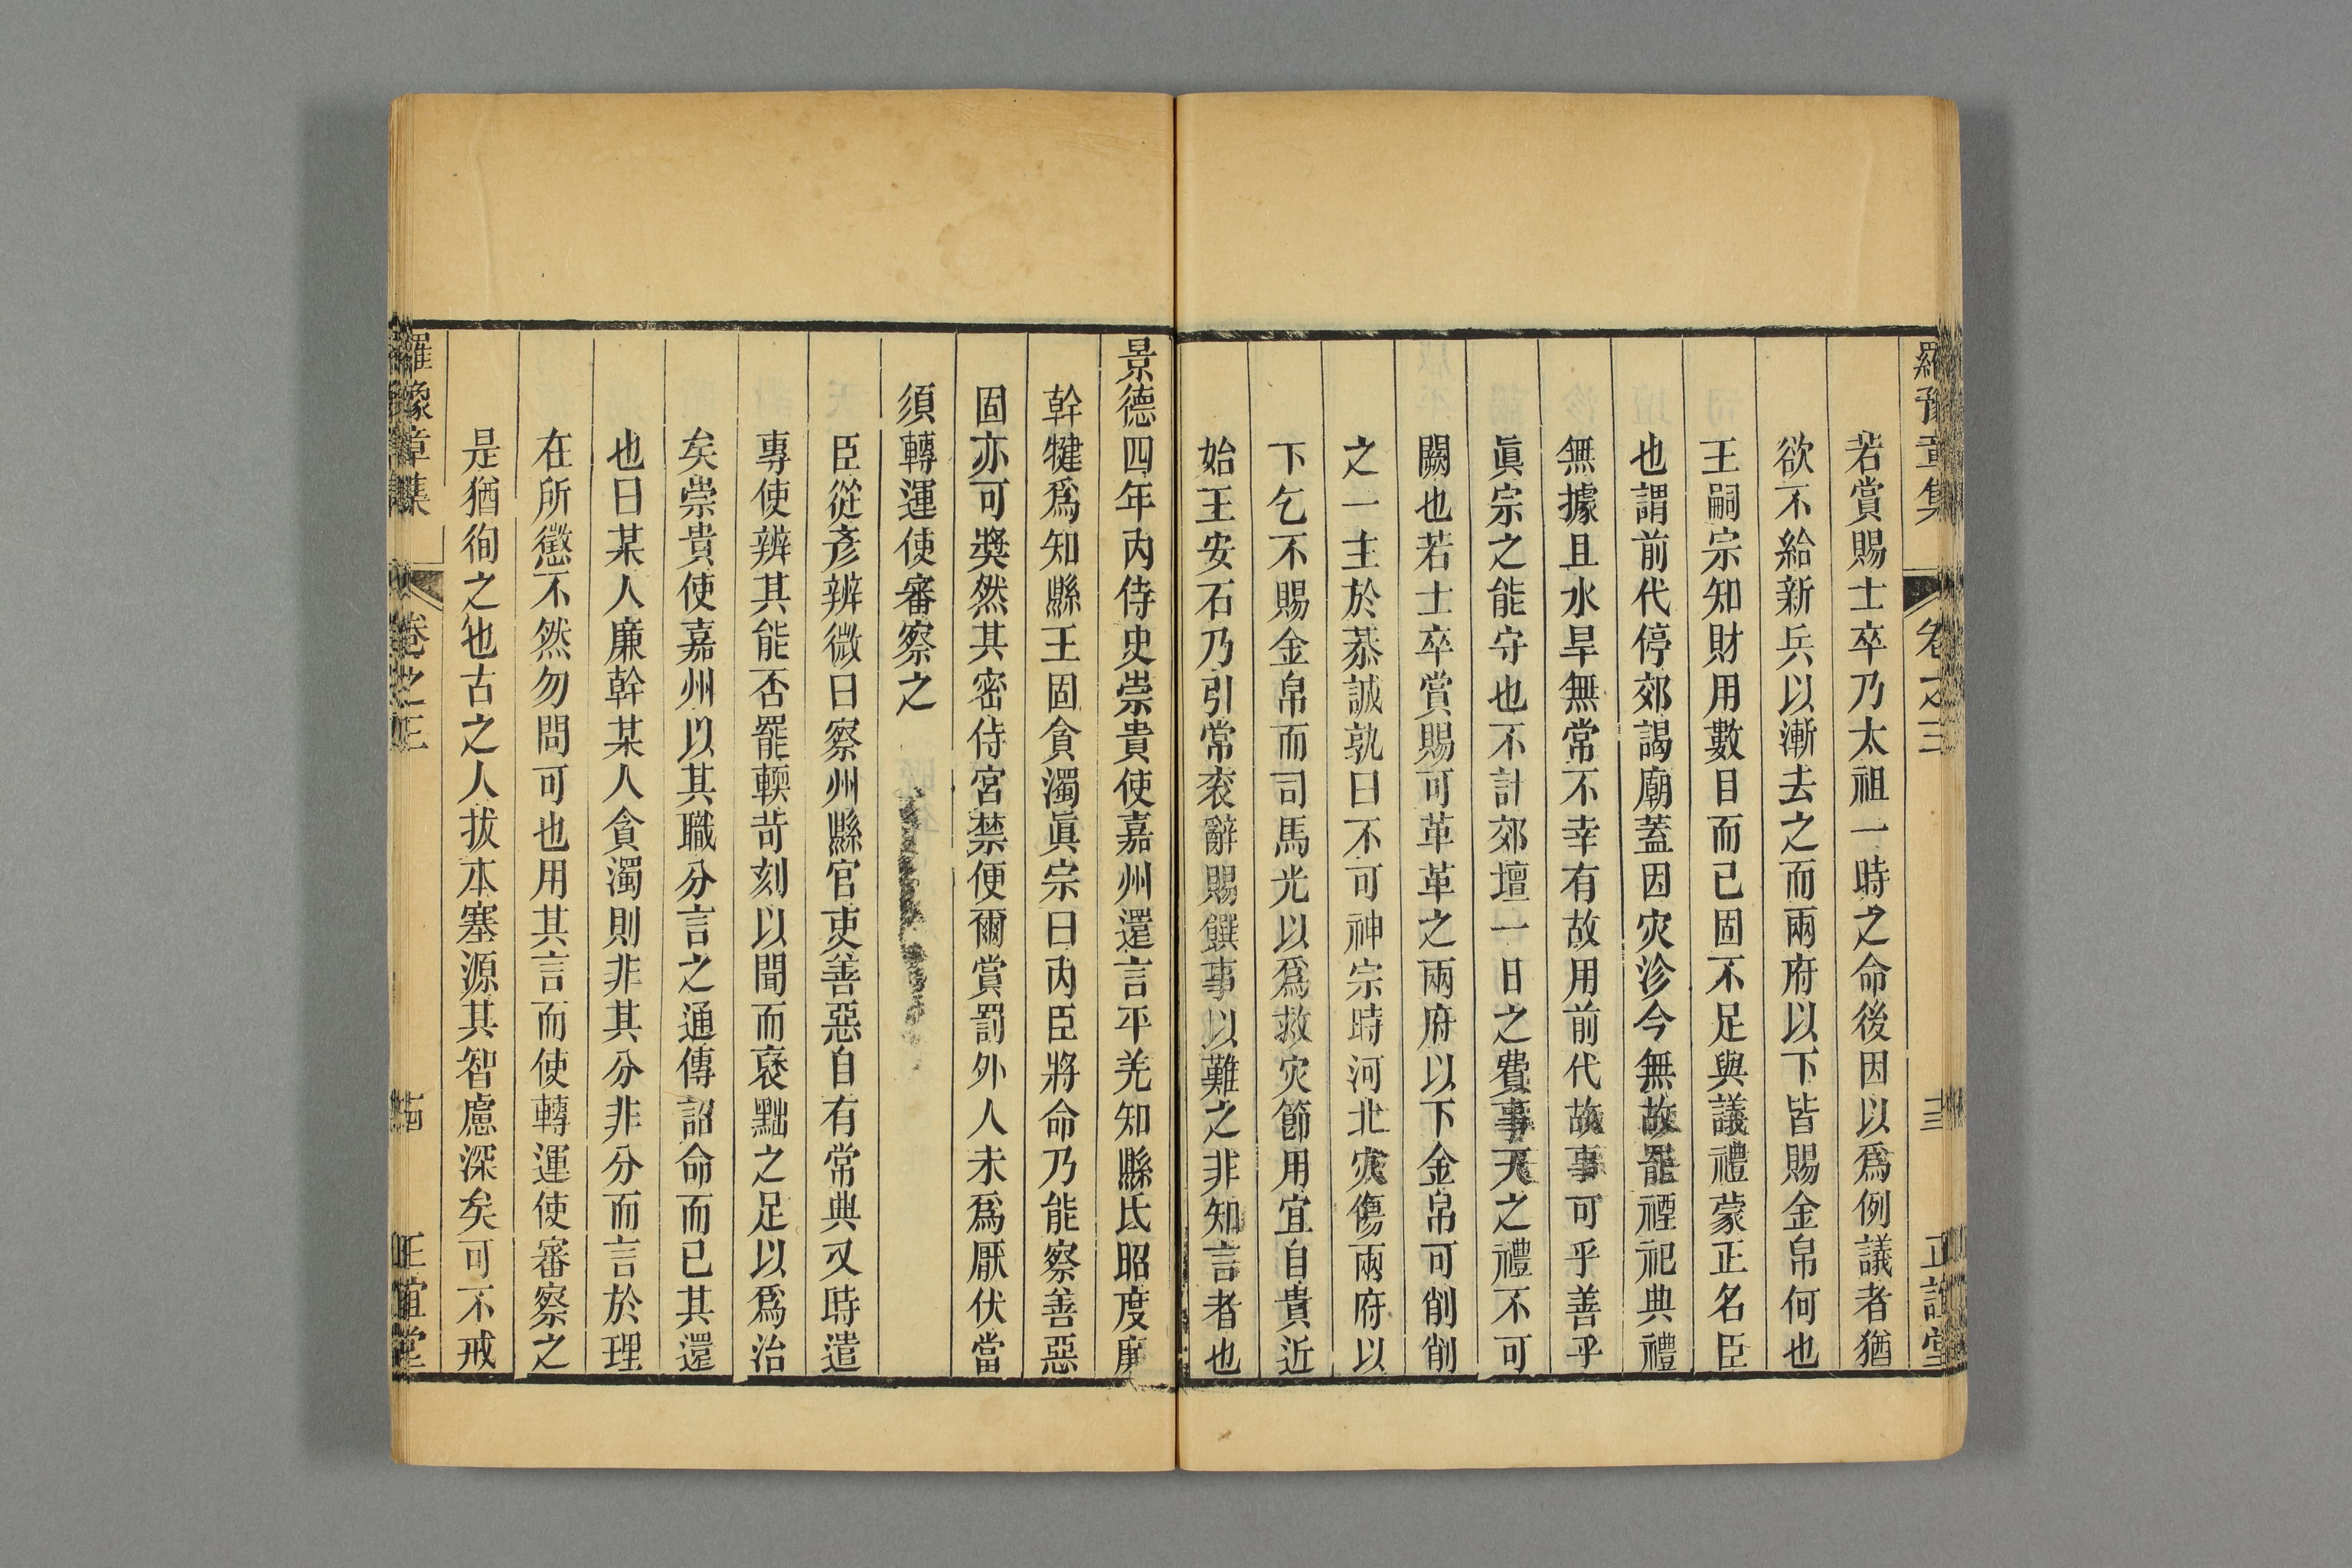 羅豫章集 卷之三 十三 正誼堂
若賞賜士卒乃太祖一時之命後因以爲例議者猶
欲不給新兵以漸去之而兩府以下皆賜金帛何也
王嗣宗知財用數目而已固不足與議禮蒙正名臣
也謂前代停郊謁廟蓋因灾沴今無故罷禋祀典禮
無據且水旱無常不幸有故用前代故事可乎善乎
眞宗之能守也不計郊壇一日之費事天之禮不可
闕也若士卒賞賜可革革之兩府以下金帛可削削
之一主於恭誠孰曰不可神宗時河北灾傷兩府以
下乞不賜金帛而司馬光以爲救灾節用宜自貴近
始王安石乃引常袞辭賜饌事以難之非知言者也
景德四年内侍史崇貴使嘉州還言平羌知縣氏昭度廉
幹犍爲知縣王固貪濁眞宗曰内臣將命乃能察善惡
固亦可奬然其密侍宮禁便爾賞罰外人未爲厭伏當
須轉運使審察之
臣從彥辨微曰察州縣官吏善惡自有常典又時遣
專使辨其能否罷輭苛刻以聞而襃黜之足以爲治
矣崇貴使嘉州以其職分言之通傳詔命而已其還
也曰某人廉幹某人貪濁則非其分非分而言於理
在所懲不然勿問可也用其言而使轉運使審察之
是猶徇之也古之人拔本塞源其智慮深矣可不戒
羅豫章集 卷之三 十四 正誼堂